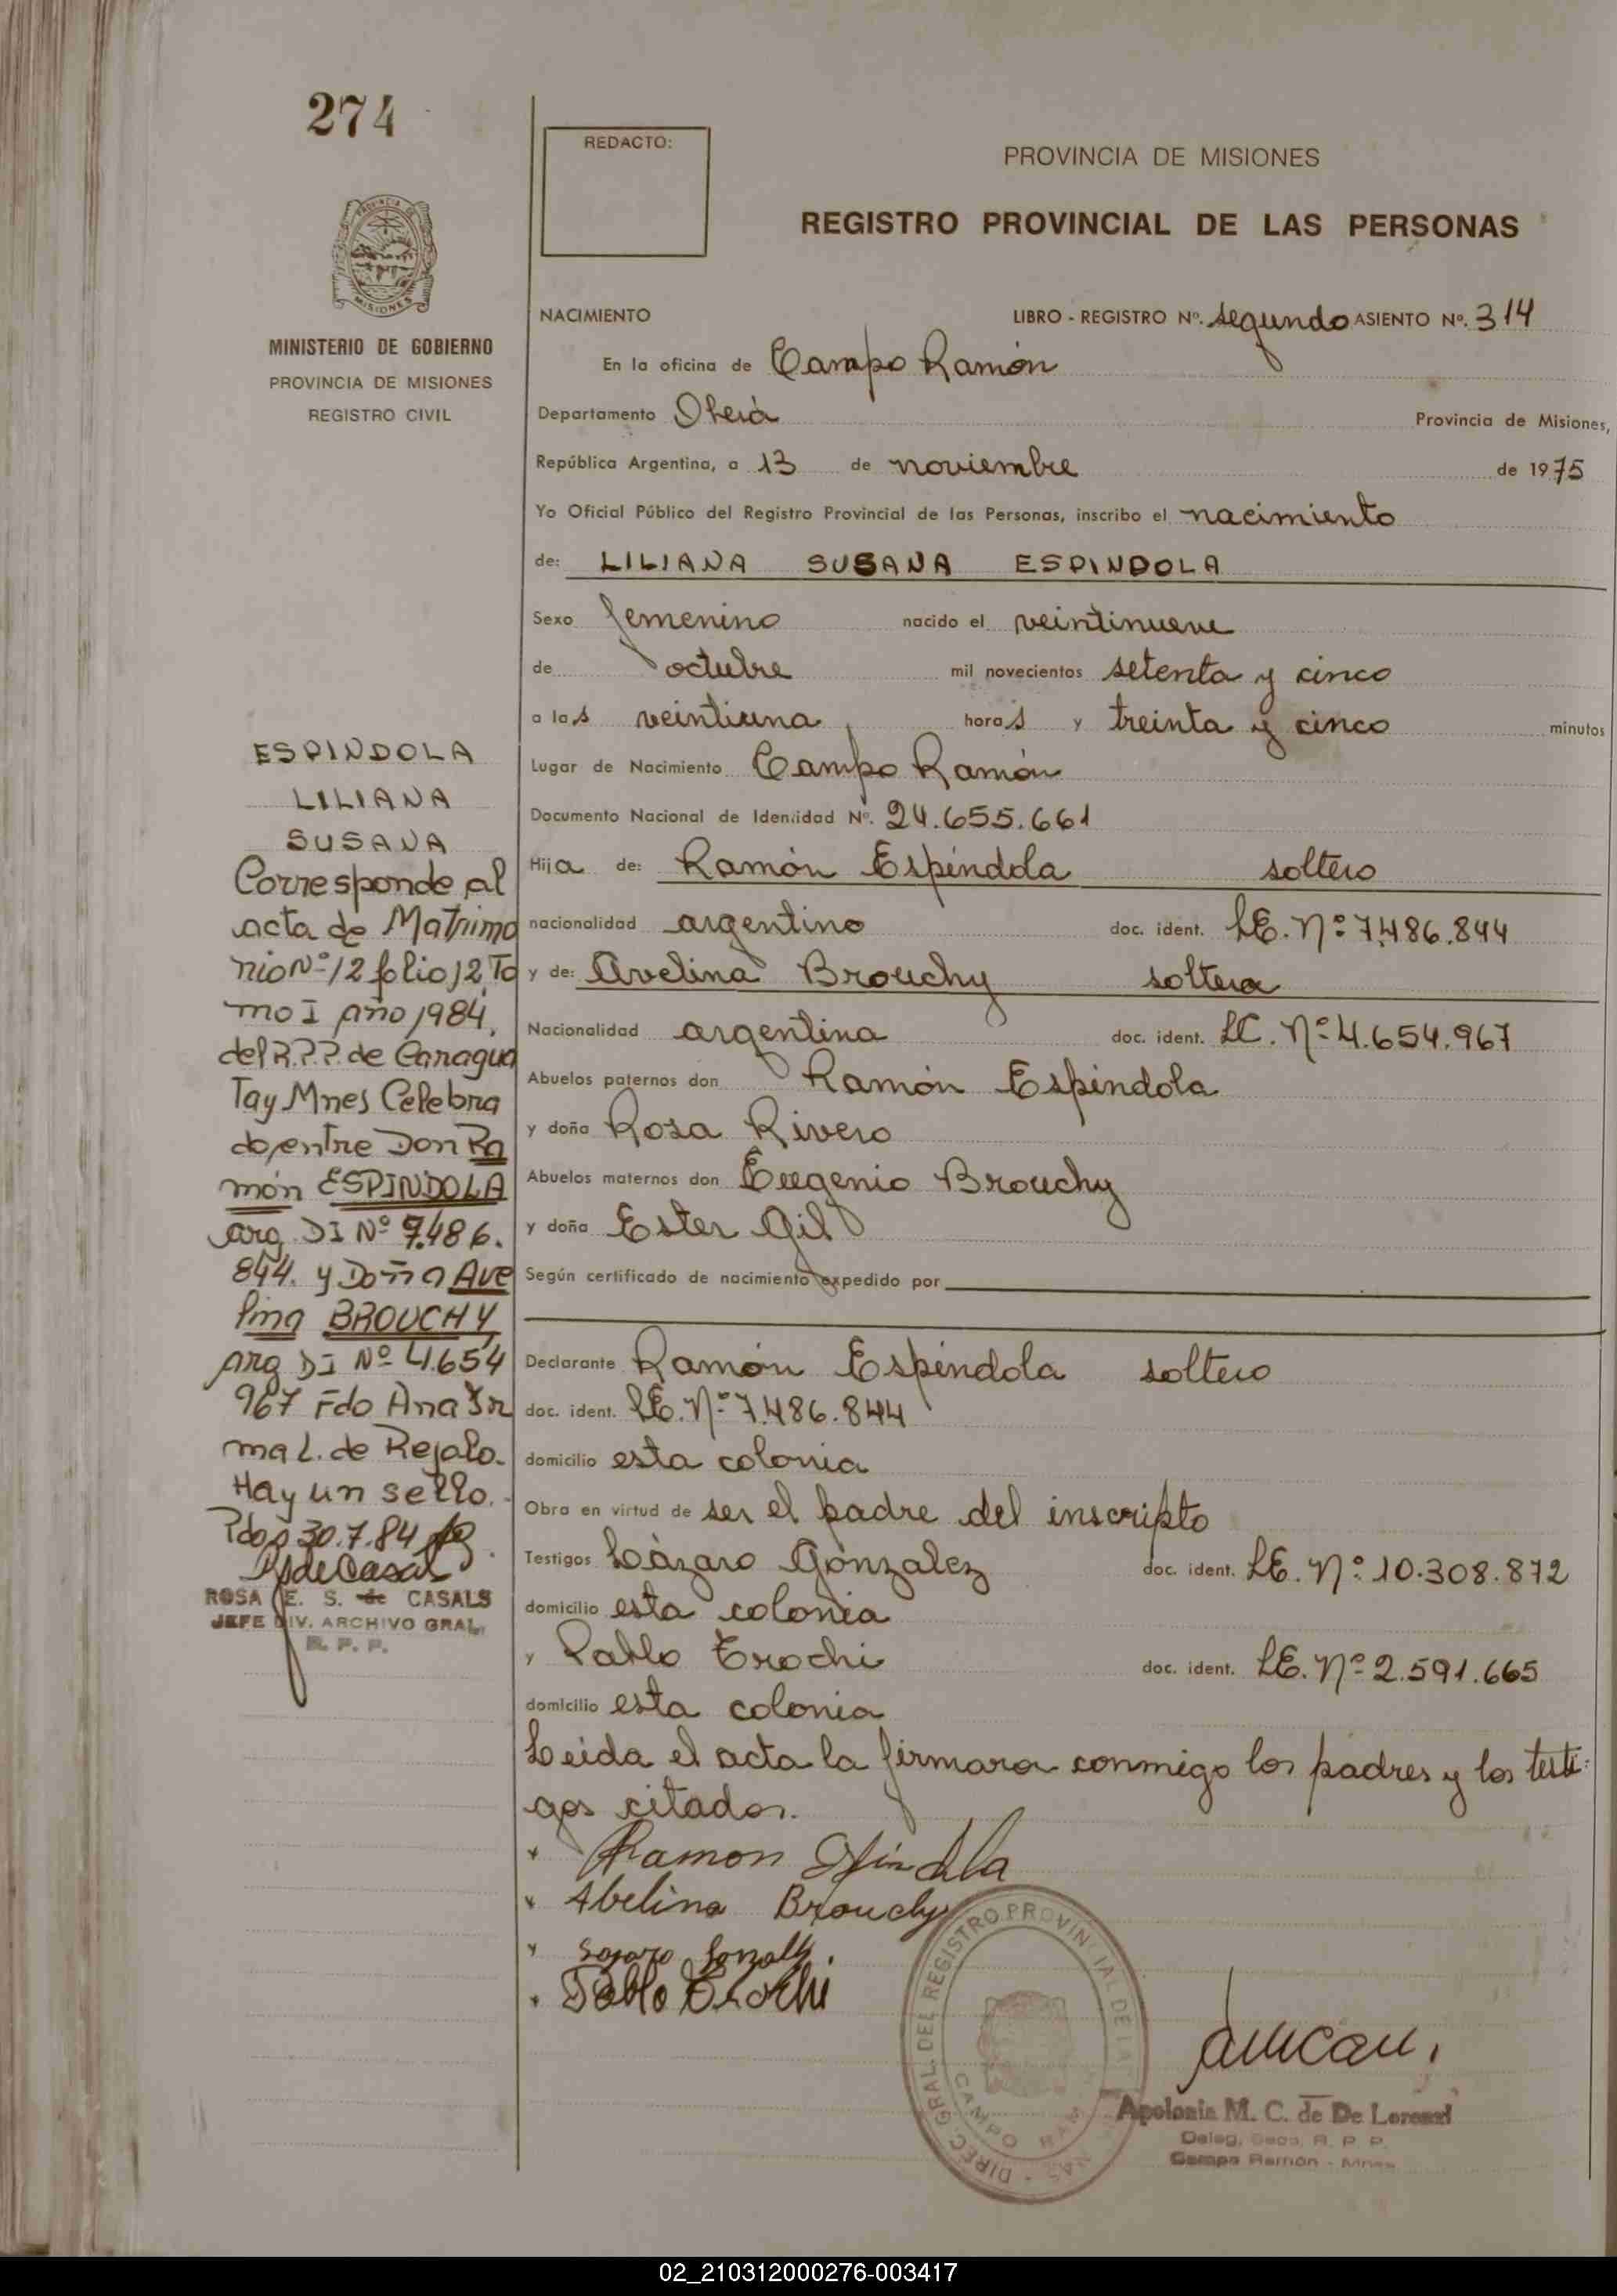 274
REDACTO:
PROVINCIA DE MISIONES
REGISTRO PROVINCIAL DE LAS PERSONAS
PROVINCIA DE
MISIONES
MINISTERIO DE GOBIERNO
PROVINCIA DE MISIONES
REGISTRO CIVIL
NACIMIENTO LIBRO - REGISTRO Nº. segundo ASIENTO Nº. 314
En la oficina de Campo Ramón
Departamento Oberá Provincia de Misiones,
República Argentina, a 13 de noviembre de 1975
Yo Oficial Público del Registro Provincial de las Personas, inscribo el nacimiento
de: LILIANA SUSANA ESPINDOLA
Sexo femenino nacido el veintinueve
de octubre mil novecientos setenta y cinco
a las veintiuna horas y treinta y cinco minutos
Lugar de Nacimiento Campo Ramón
Documento Nacional de Identidad Nº. 24.655.661
Hija de: Ramón Espíndola soltero
nacionalidad argentino doc. ident. LE. Nº 7.486.844
y de: Avelina Brouchy soltera
Nacionalidad argentina doc. ident. LC. Nº 4.654.967
Abuelos paternos don Ramón Espíndola
y doña Rosa Rivero
Abuelos maternos don Eugenio Brouchy
y doña Ester Gil
Según certificado de nacimiento expedido por
Declarante Ramón Espíndola soltero
doc. ident. LE. Nº 7.486.844
domicilio esta colonia
Obra en virtud de ser el padre del inscripto
Testigos Lázaro Gónzalez doc. ident. LE. Nº 10.308.872
domicilio esta colonia
y Pablo Erochi doc. ident. LE. Nº 2.591.665
domicilio esta colonia
Leida el acta la firmaron conmigo los padres y los testi-
gos citados.
Ramon Espindola
Abelina Brouchy
Pablo Erochi
ESPINDOLA
LILIANA
SUSANA
Corresponde al
acta de Matrimo
nio Nº 12 folio 12 To
mo I año 1984.
del R.P.P. de Caragua
Tay Mnes Celebra
do entre Don Ra
món ESPINDOLA
arg DI Nº 7.486.
844. y Doña Ave
lina BROUCHY
arg DI Nº 4.654
967 Fdo Ana Ir
ma L. de Rejalo.
Hay un sello.
Pdas 30.7.84
RSdeCasals
ROSA E. S. de CASALS
JEFE DIV. ARCHIVO GRAL.
R. P. P.
DIREC. GRAL. DEL REGISTRO PROVINCIAL DE LAS PERSONAS
CAMPO RAMON
Apolonia M. C. de De Lorenzi
Deleg. Secc. R. P. P.
Campo Ramón - Mnes
02_210312000276-003417